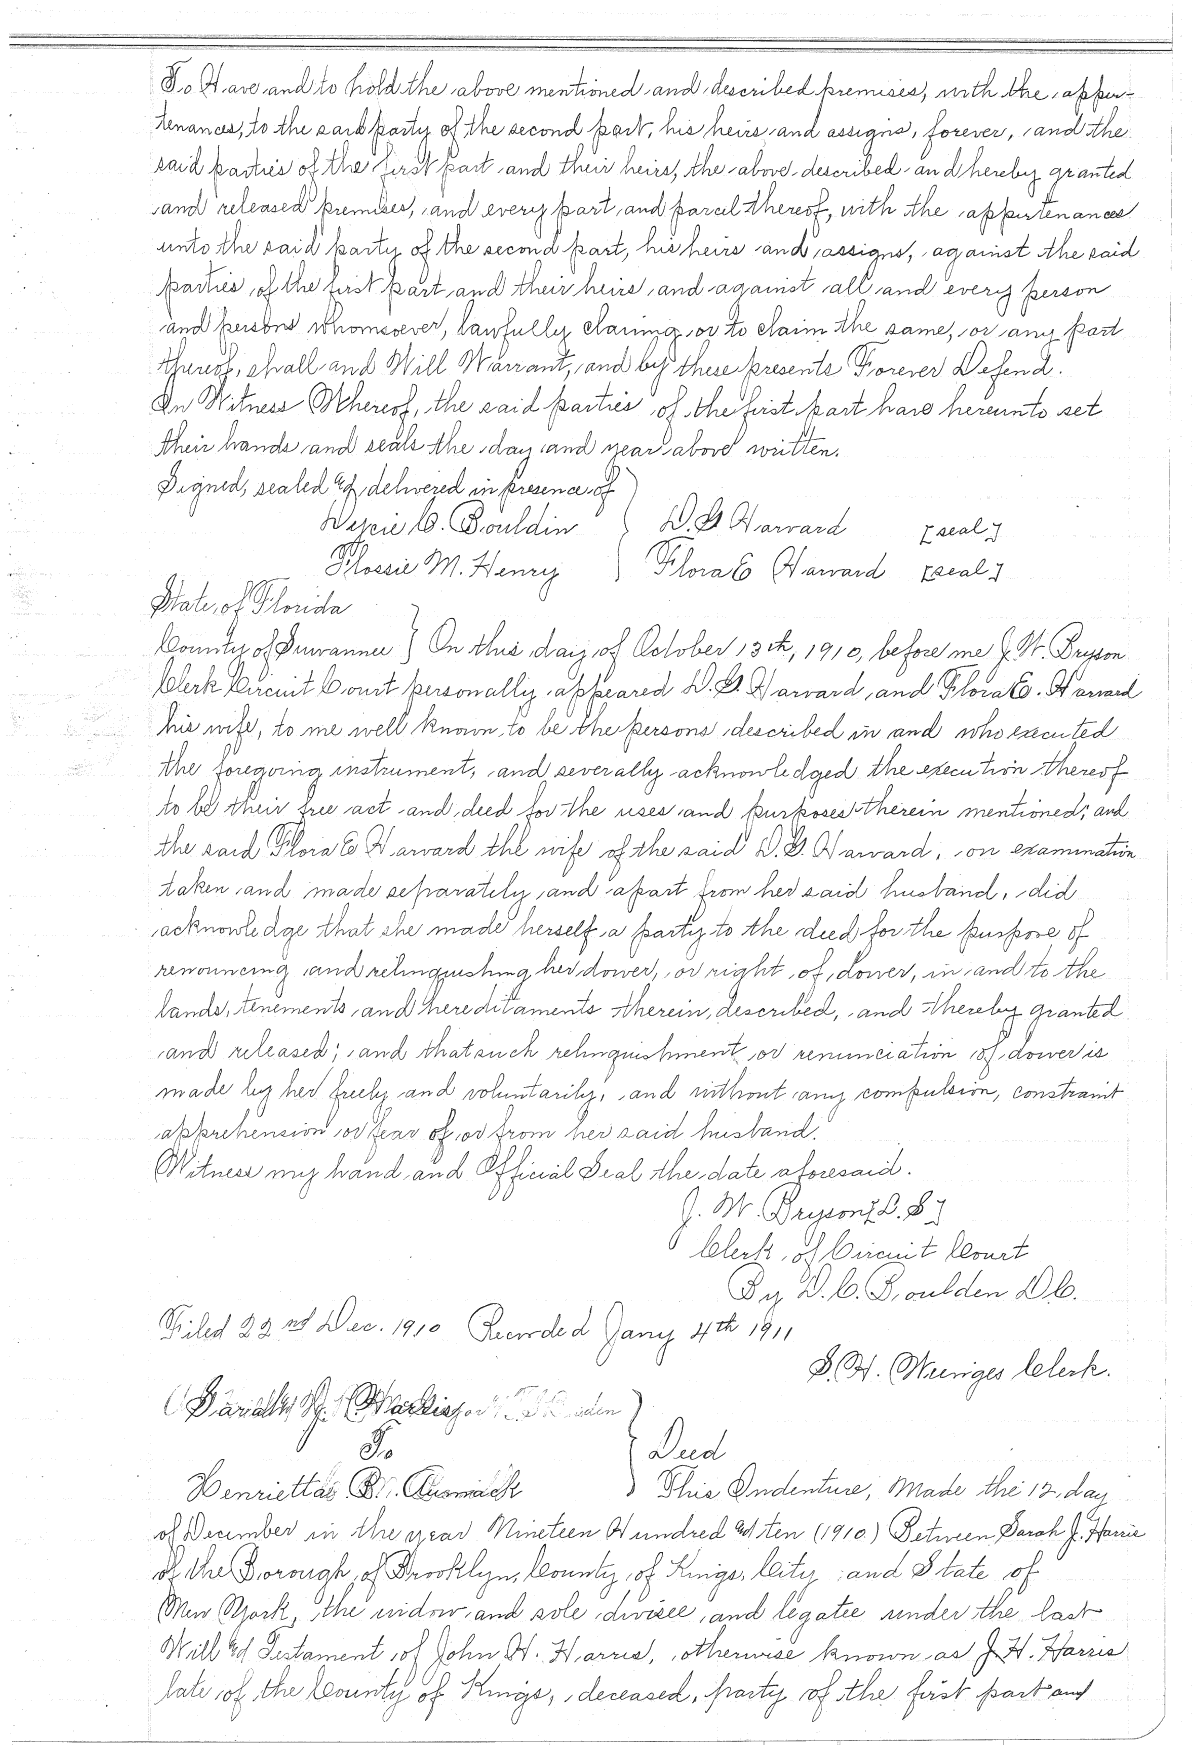 To Have and to hold the above mentioned and described premises, with the appur-
tenances, to the said party of the second part, his heirs and assigns, forever, and the
said parties of the first part and their heirs, the above described and hereby granted
and released premises, and every part and parcel thereof, with the appurtenances
unto the said party of the second part, his heirs and assigns, against the said
parties of the first part and their heirs and against all and every person
and persons whomsoever, lawfully claming or to claim the same, or any part
thereof, shall and Will Warrant, and by these presents Forever Defend.
In Witness Whereof, the said parties of the first part have hereunto set
their hands and seals the day and year above written.
Signed, sealed & delivered in presence of
C. Bouldin } D. G Harvard [seal]
Flossie M. Henry } Flora E Harvard [seal]
State of Florida
County of Suwannee } On this day of October 13th, 1910, before me J. W. Bryson
Clerk Circuit Court personally appeared D. G. Harvard and Flora E. Harvard
his wife, to me well known to be the persons described in and who executed
the foregoing instrument, and severally acknowledged the execution thereof
to be their free act and deed for the uses and purposes therein mentioned; and
the said Flora E Harvard the wife of the said D. G. Harvard, on examination
taken and made separately and apart from her said husband, did
acknowledge that she made herself a party to the deed for the purpose of
renouncing and relinquishing her dower, or right of dower, in and to the
lands, tenements and hereditaments therein described, and thereby granted
and released; and that such relinquishment or renunciation of dower is
made by her freely and voluntarily, and without any compulsion, constraint
apprehension or fear of or from her said husband.
Witness my hand and Official Seal the date aforesaid.
J. W. Bryson [L. S]
Clerk of Circuit Court
By D. C. Boulden D C.
Filed 22nd Dec. 1910 Recorded Jany 4th 1911
S. H. Clerk.
To } Deed
Henrietta This Indenture, Made the 12 day
of December in the year Nineteen Hundred & ten (1910) Between Sarah J. Harris
of the Borough of Brooklyn, County of Kings, City and State of
New York, the widow and sole divisee and legatee under the last
Will & Testament of John H. Harris, otherwise known as J. H. Harris
late of the County of Kings, deceased, party of the first part and